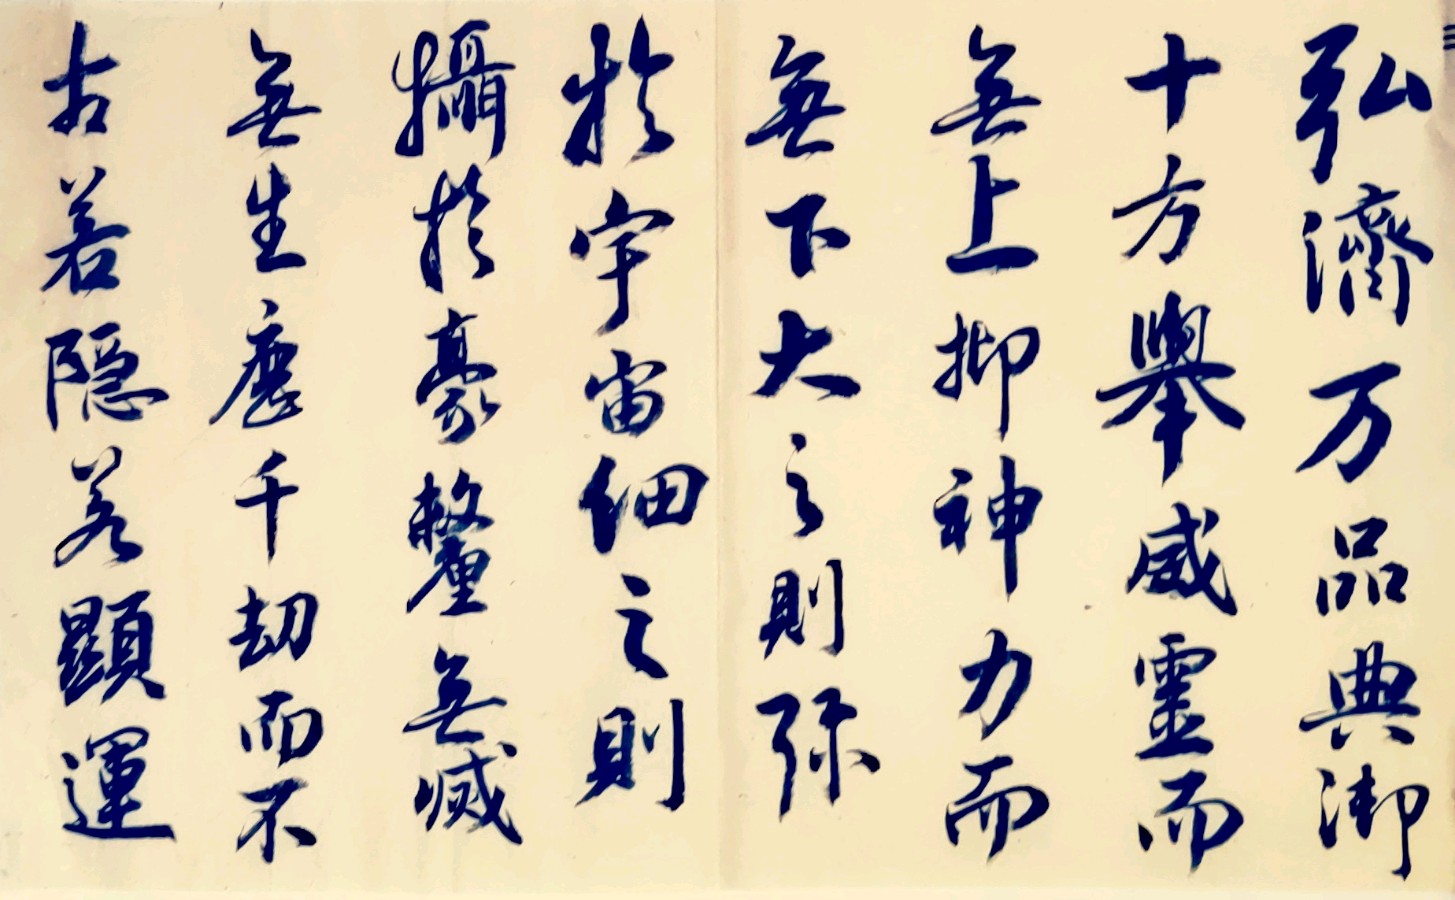 弘濟万品典御
十方舉威靈而
無上抑神力而
無下大之則弥
於宇宙細之則
攝於豪釐無滅
無生歷千劫而不
古若隱若顯運